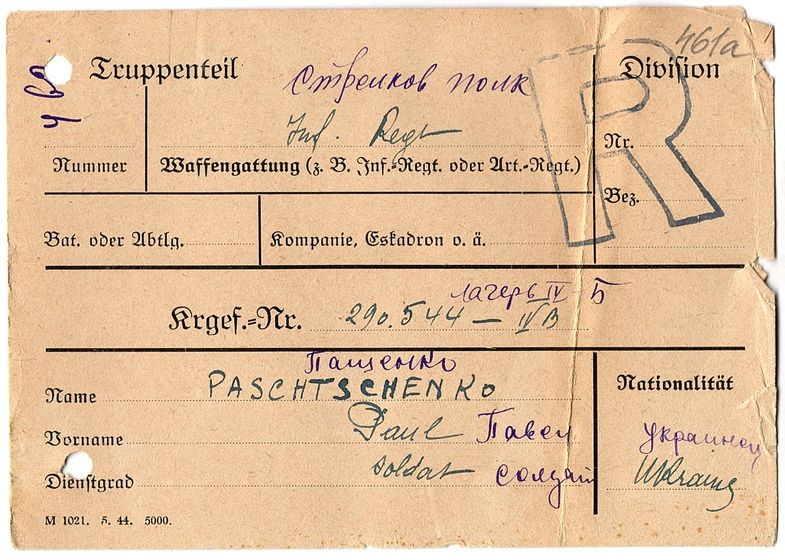 461a
Truppenteil Стрелков полк Division
Inf. Regt
Nr.
Nummer Waffengattung (z. B. Inf.-Regt. oder Art.-Regt.)
Bez.
R
Bat. oder Abtlg. Kompanie, Eskadron o. ä.
лагерь IV Б
Krgef.-Nr. 290.544 – IV B
Пащенко
Name PASCHTSCHENKO Nationalität
Vorname Paul Павел украинец
Dienstgrad Soldat солдат
M 1021. 5. 44. 5000.